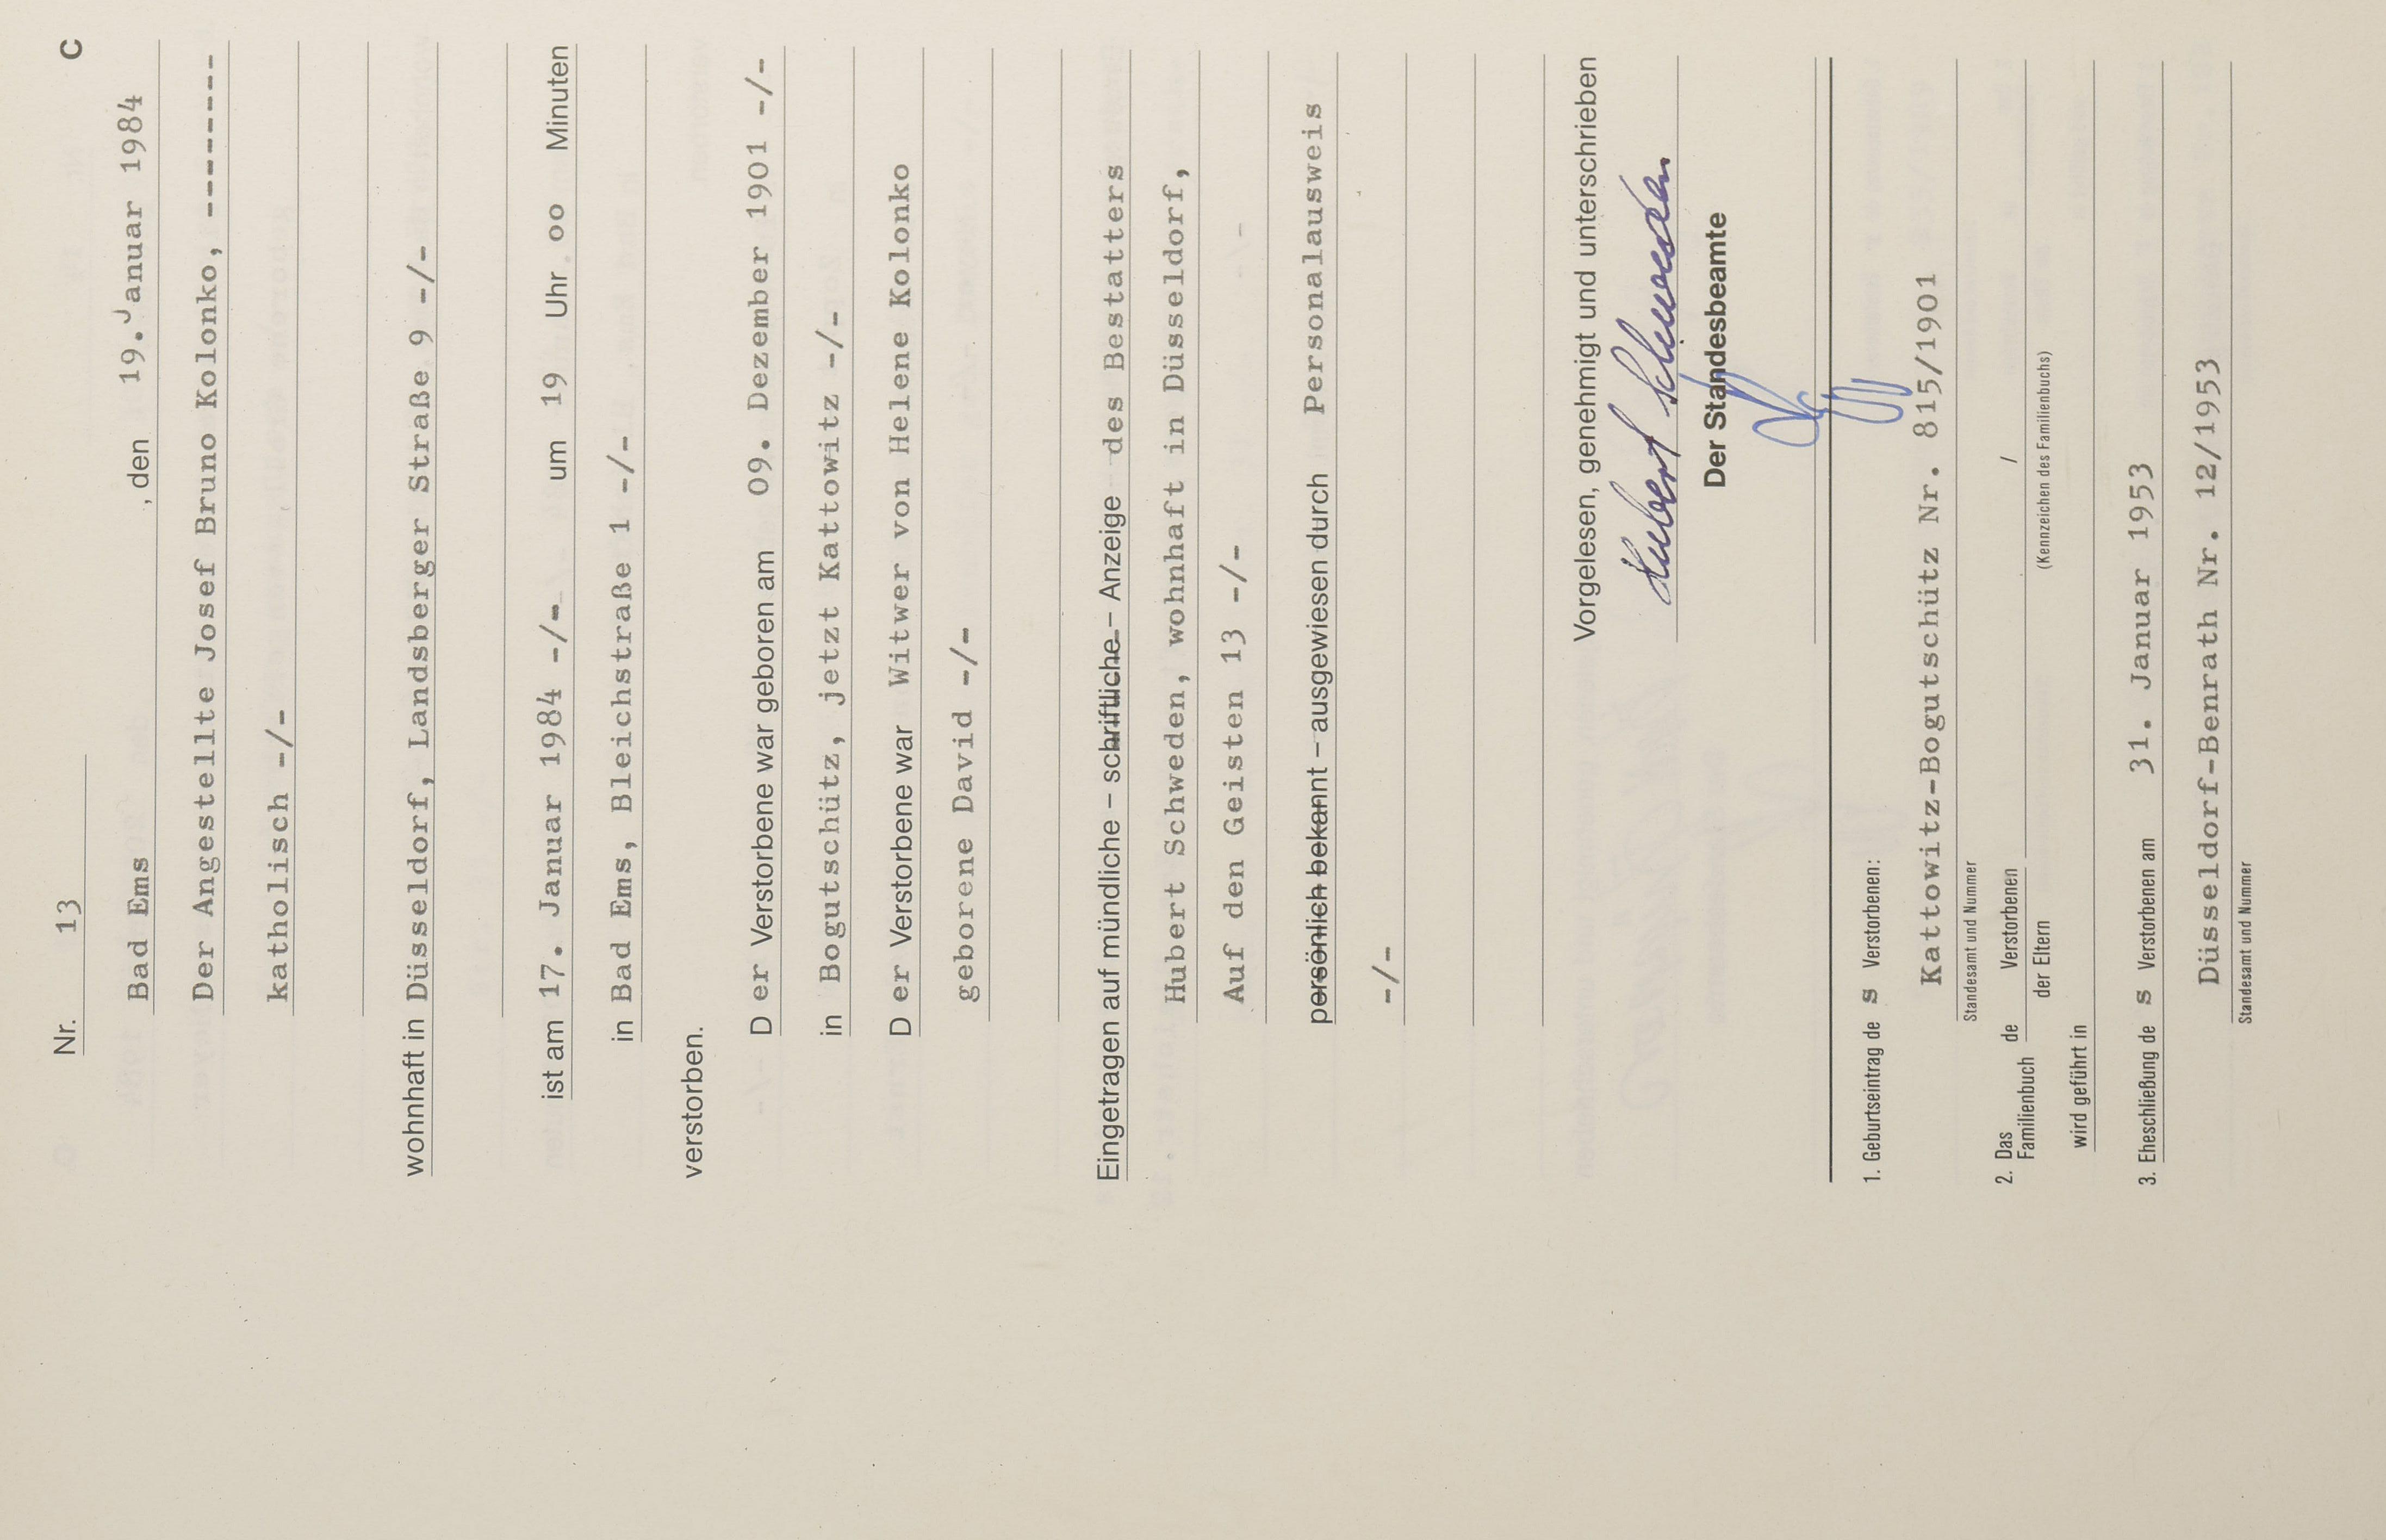 Nr. 13 C
Bad Ems , den 19. Januar 1984
Der Angestellte Josef Bruno Kolonko, ---------
katholisch -/-
wohnhaft in Düsseldorf, Landsberger Straße 9 -/-
ist am 17. Januar 1984 -/- um 19 Uhr oo Minuten
in Bad Ems, Bleichstraße 1 -/-
verstorben.
D er Verstorbene war geboren am 09. Dezember 1901 -/-
in Bogutschütz, jetzt Kattowitz -/-
D er Verstorbene war Witwer von Helene Kolonko
geborene David -/-
Eingetragen auf mündliche – schriftliche – Anzeige des Bestatters
Hubert Schweden, wohnhaft in Düsseldorf,
Auf den Geisten 13 -/-
persönlich bekannt – ausgewiesen durch Personalausweis
-/-
Vorgelesen, genehmigt und unterschrieben
Hubert Schweden
Der Standesbeamte
1. Geburtseintrag de s Verstorbenen:
Kattowitz-Bogutschütz Nr. 815/1901
Standesamt und Nummer
2. Das Familienbuch de Verstorbenen /
der Eltern (Kennzeichen des Familienbuchs)
wird geführt in
3. Eheschließung de s Verstorbenen am 31. Januar 1953
Düsseldorf-Benrath Nr. 12/1953
Standesamt und Nummer